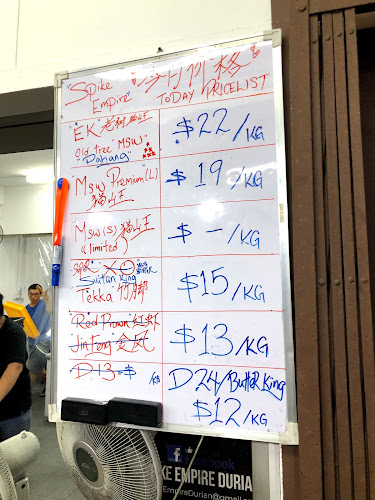 "Spike Empire"
"今日价格"
TODAY PRICELIST
"EK老树猫山王
old tree "MSW"
"Pahang"
$22/KG
"Msw Premium(L)
猫山王
$19/KG
Msw(s)猫山王
(limited)
$ -/KG
Sultan King
Tekka 竹脚
$15/KG
Red Prawn 红虾
Jin Feng 金凤
$13/KG
D13 $ /KG
D24/Butter King
$12/KG
facebook
KE EMPIRE DURIA
EmpireDurian@gmail.c